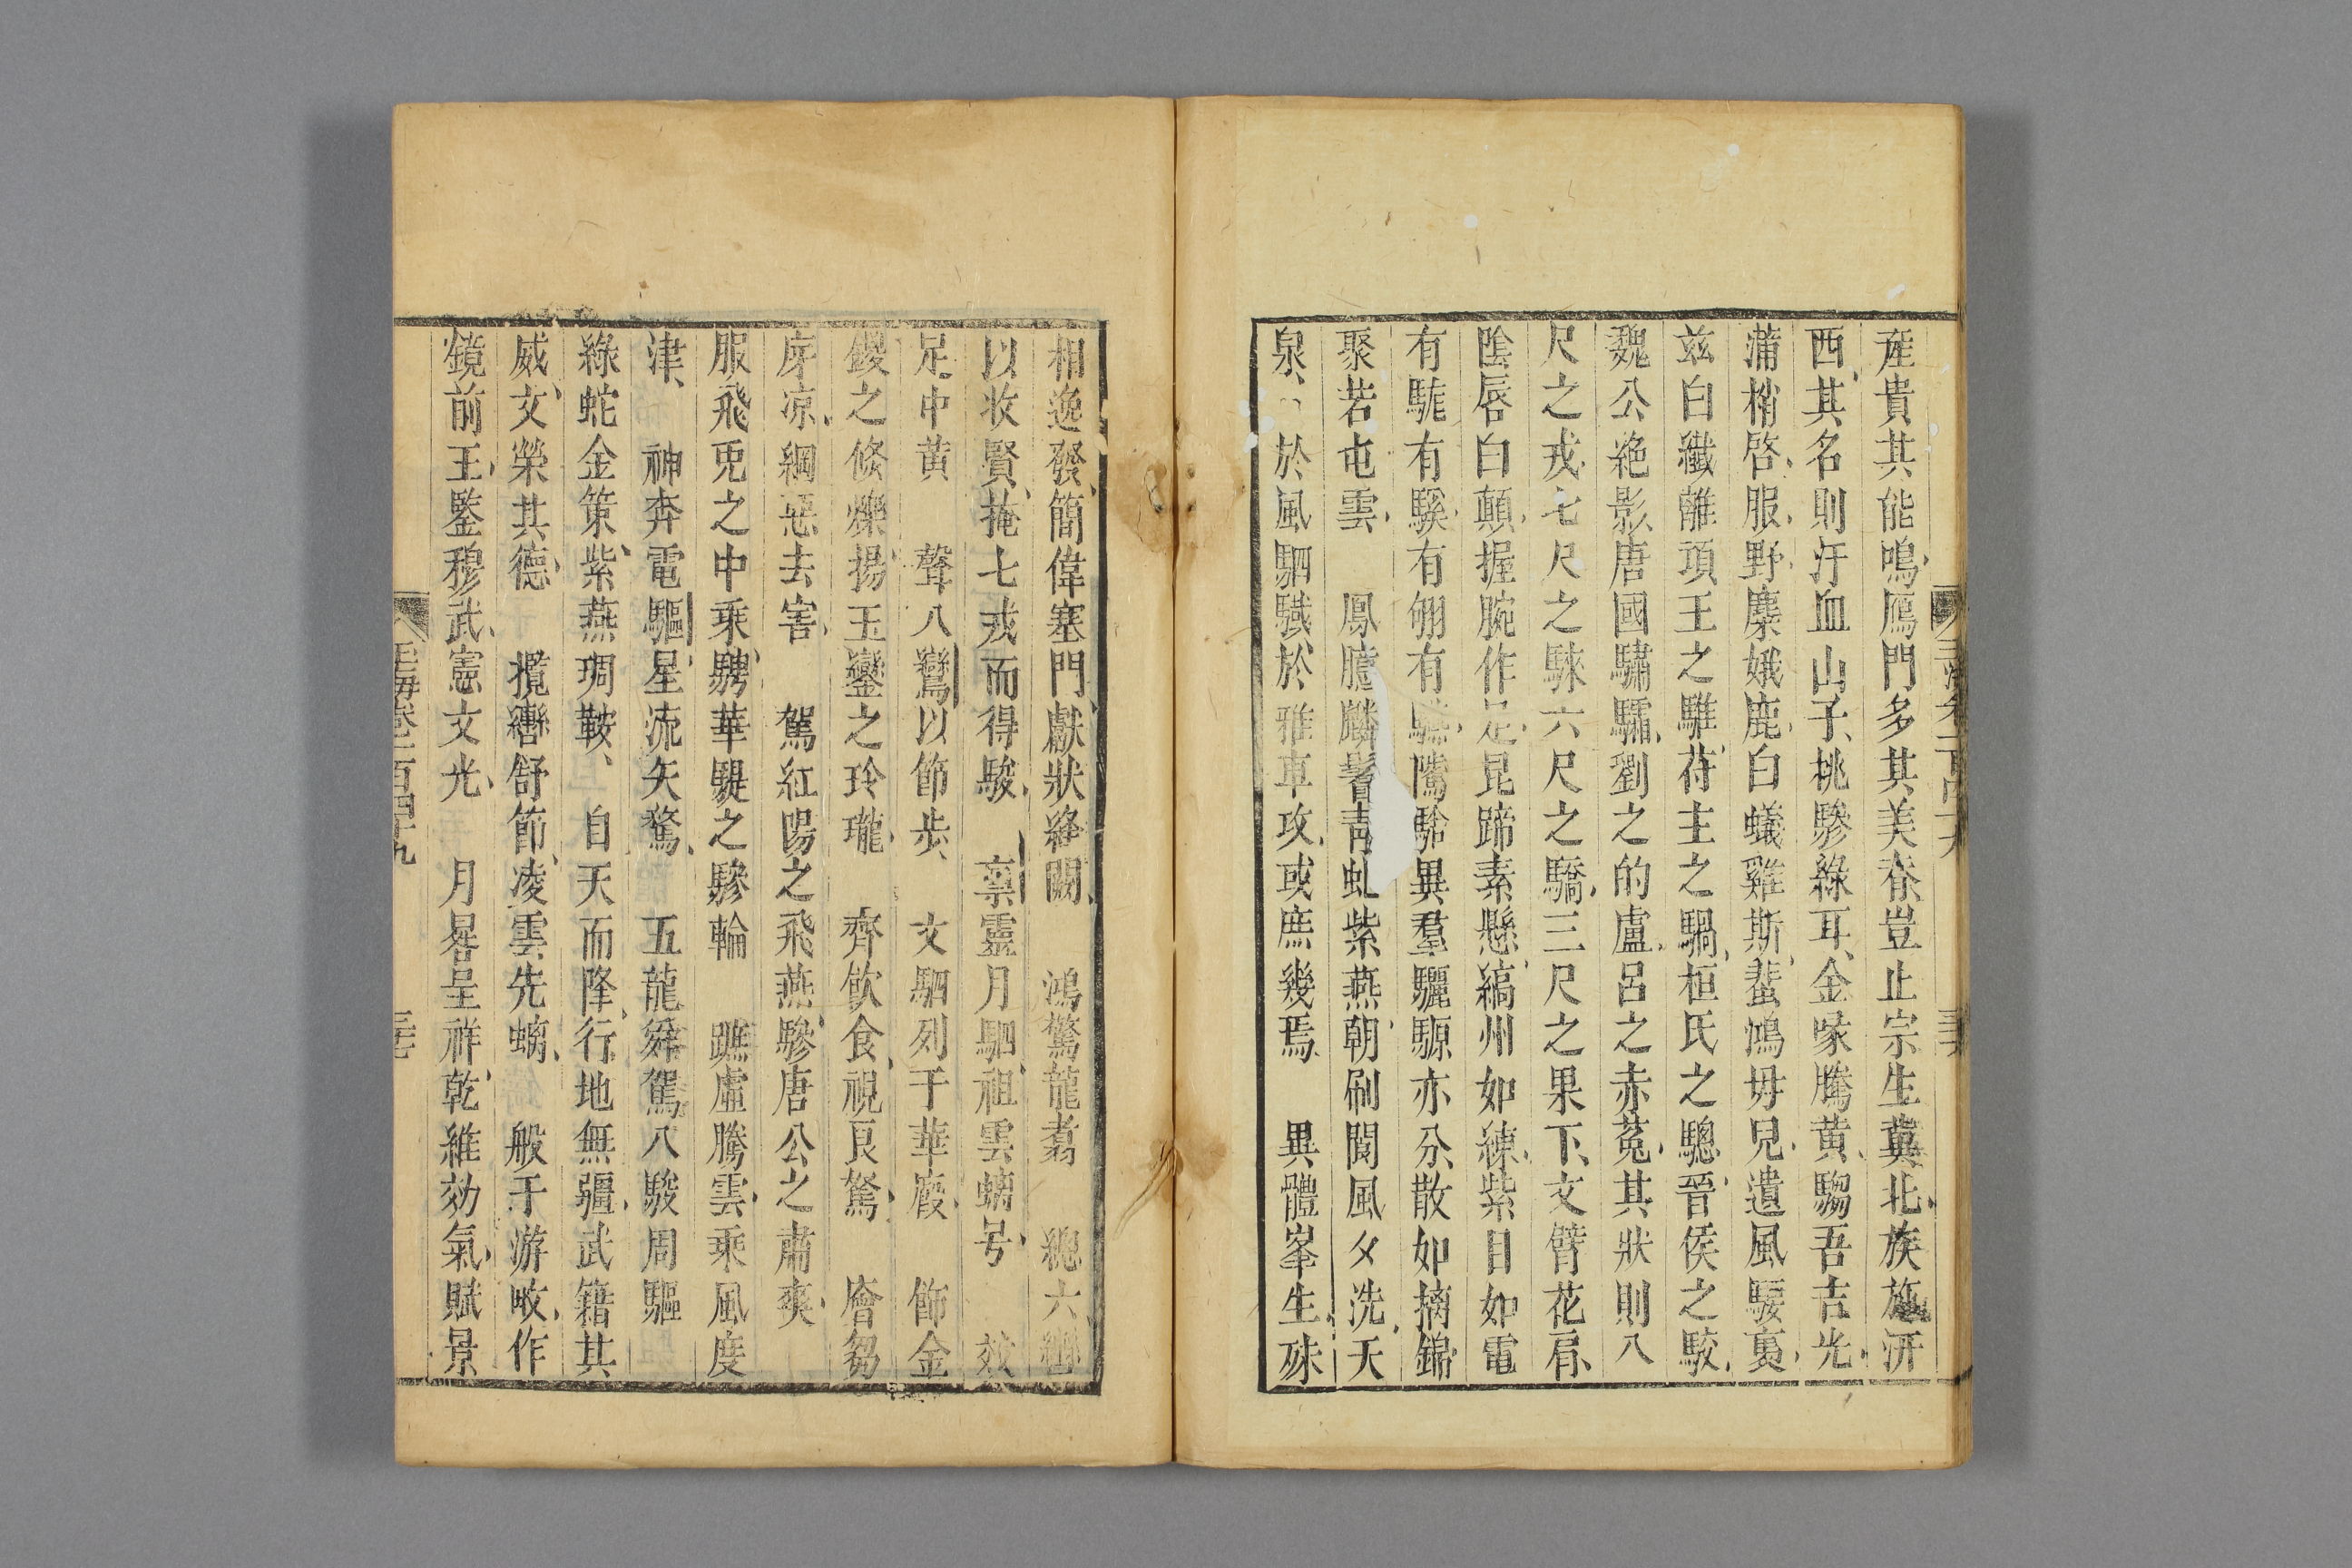 産貴其能鳴鴈門多其美春豈止宗生冀北族茂汧
西其名則汗血山子桃驂綠耳金喙騰黄騶吾吉光
蒲梢啓服野麋娥鹿白蟻雞斯蜚鴻毋兒遺風騕褭
兹白纖離項王之騅苻主之騧桓氏之驄晉侯之駮
魏公絶影唐國驌驦劉之的盧呂之赤菟其狀則八
尺之戎七尺之騋六尺之驕三尺之果下文臂花肩
陰唇白顛握腕作足昆蹄素懸縞州如練紫目如電
有駹有騱有翎有驠騰騇異羣驪騵亦分散如摛錦
聚若屯雲 鳳臆麟鬐青虬紫燕朝刷閬風夕洗天
泉 於風駟驖於雅車攻或庶幾焉 異體峯生殊
相逸發簡偉塞門獻狀絳闕 鴻驚龍翥 總六轡
以收賢掩七戎而得駿 禀靈月駟祖雲螭号 效
足中黄 聲八鸞以節步 文駟列于華廄 飾金
鍐之倏爍揚玉鑾之玲瓏 齊飲食視良駑 廥芻
庌凉綱惡去害 駕紅陽之飛燕驂唐公之肅爽
服飛兎之中乘騁華騠之驂輪 蹠虛騰雲乘風度
津 神奔電驅星流矢驚 五龍舜駕八駿周驅
綠蛇金策紫燕琱鞍 自天而降行地無疆武籍其
威文榮其德 攬轡舒節凌雲先螭 般于游畋作
鏡前王鑒穆武憲文光 月晷呈祥乾維効氣賦景
玉海卷一百四十九 三七